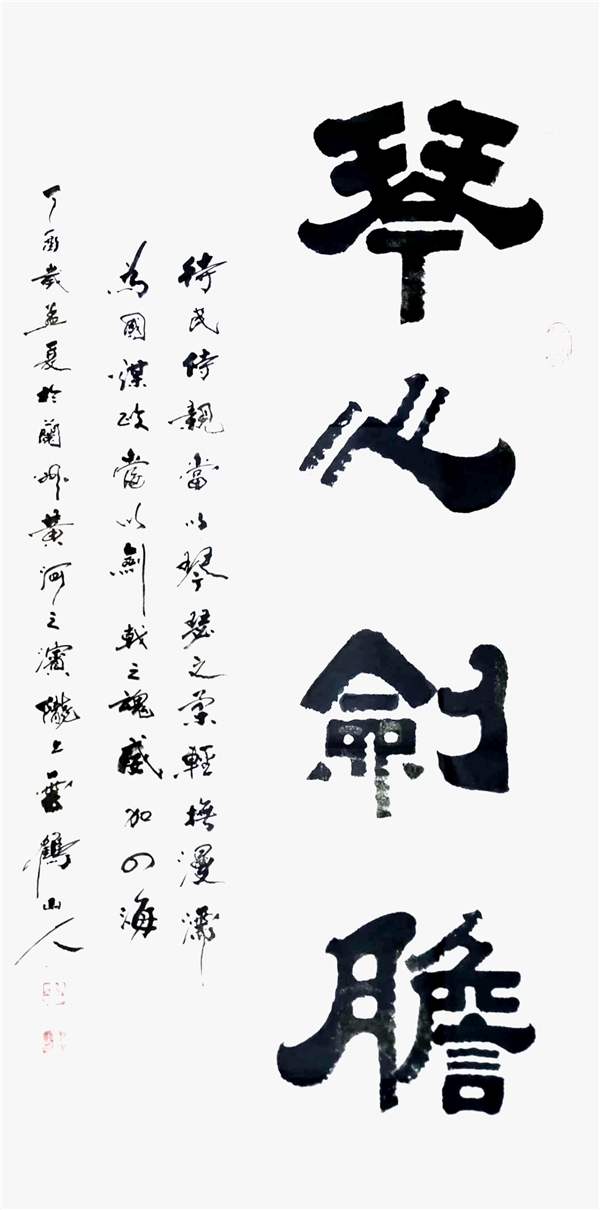 琴心劍膽
待民侍親當以琴瑟之柔輕撫漫瀰
為國謀政當以劍戟之魂威加四海
丁酉歲孟夏於蘭州黃河之濱隴上雲鶴山人